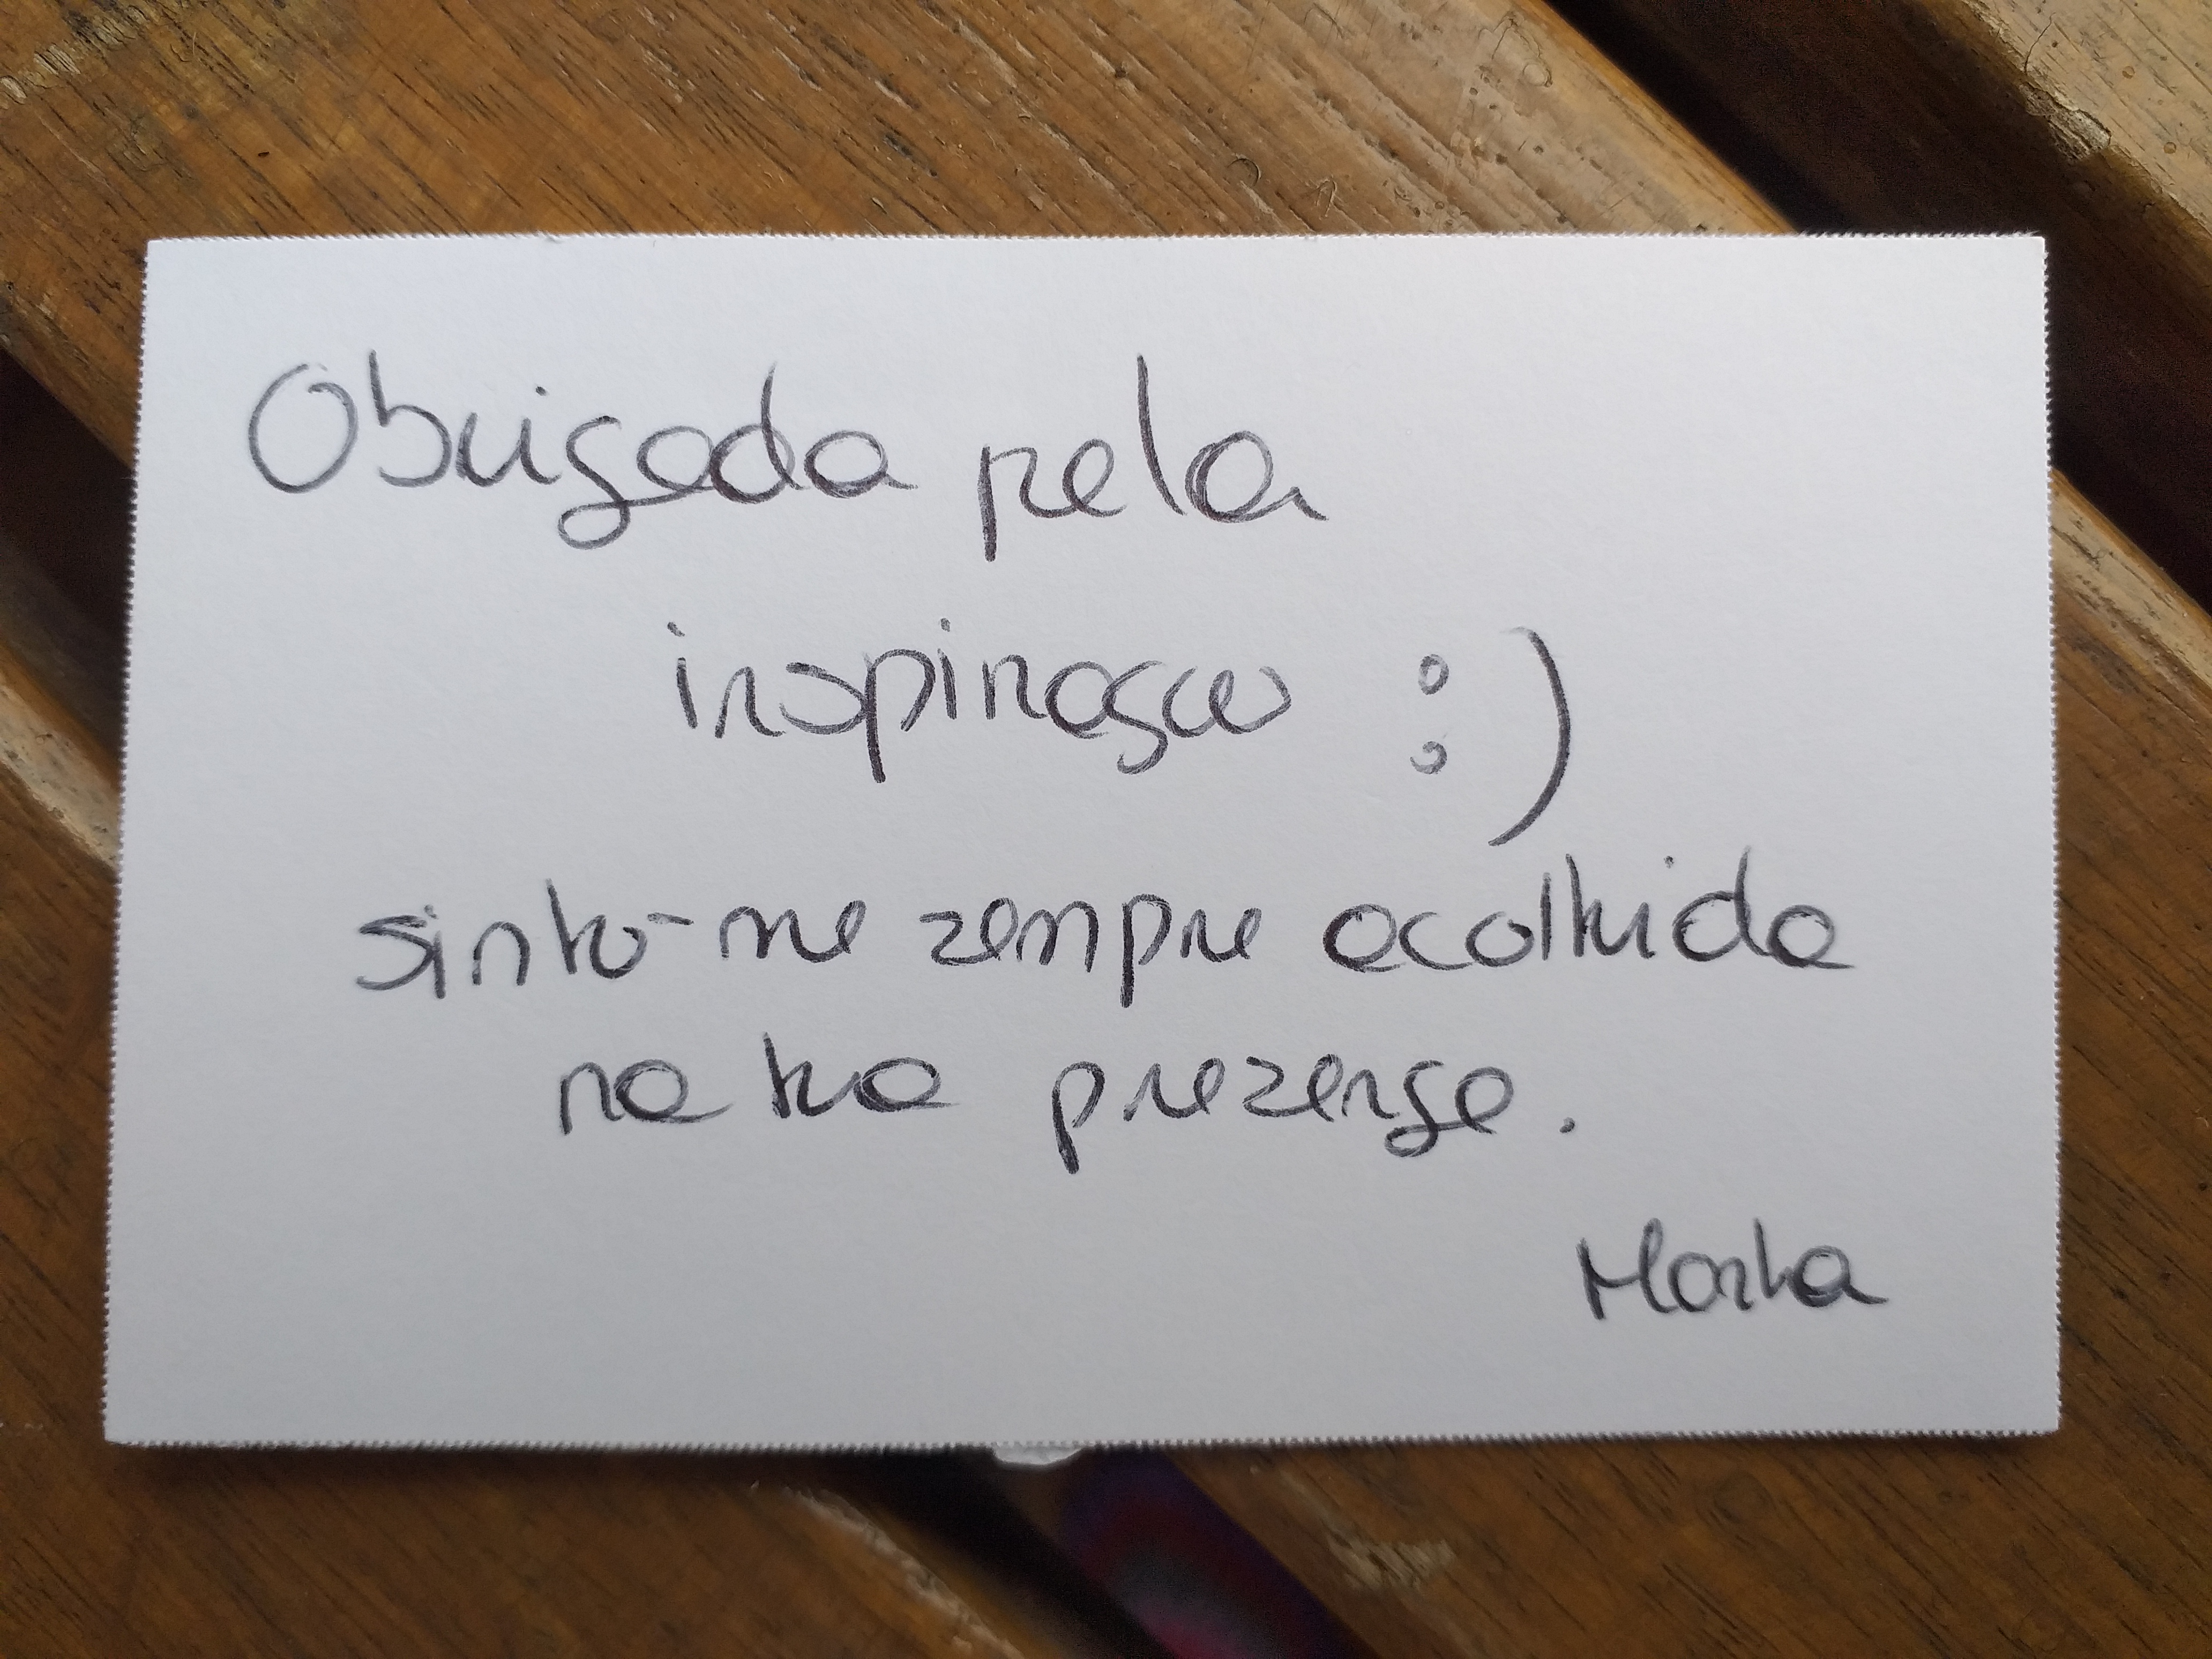 Obrigada pela
inspiração :)
sinto-me sempre acolhida
na tua presença.
Marta